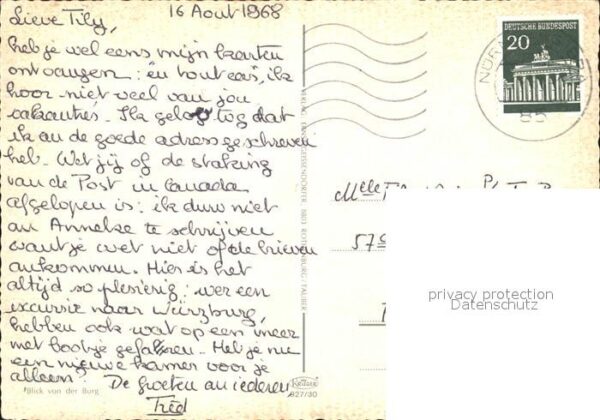 16 Aout 1968
Lieve Tily,
heb je wel eens mijn kaarten
ontvangen: "en tout cas", ik
hoor niet veel van jou
vakanties. Ik geloof tog dat
ik an de goede adress geschreven
heb. Wet jij of de staking
van de Post in Canada
afgelopen is: ik durv niet
an Anneke te schrijven
want je wet niet of de brieven
ankommen. Hier is het
altijd so plesierig: wer een
excursie naar Würzburg,
hebben ook wat op een meer
met bootje gefahren. Heb je nu
een nieuwe kamer voor je
alleen? De groeten an iederen
Tred
Blick von der Burg
927/30
DEUTSCHE BUNDESPOST
20
85
Melle
57
privacy protection
Datenschutz